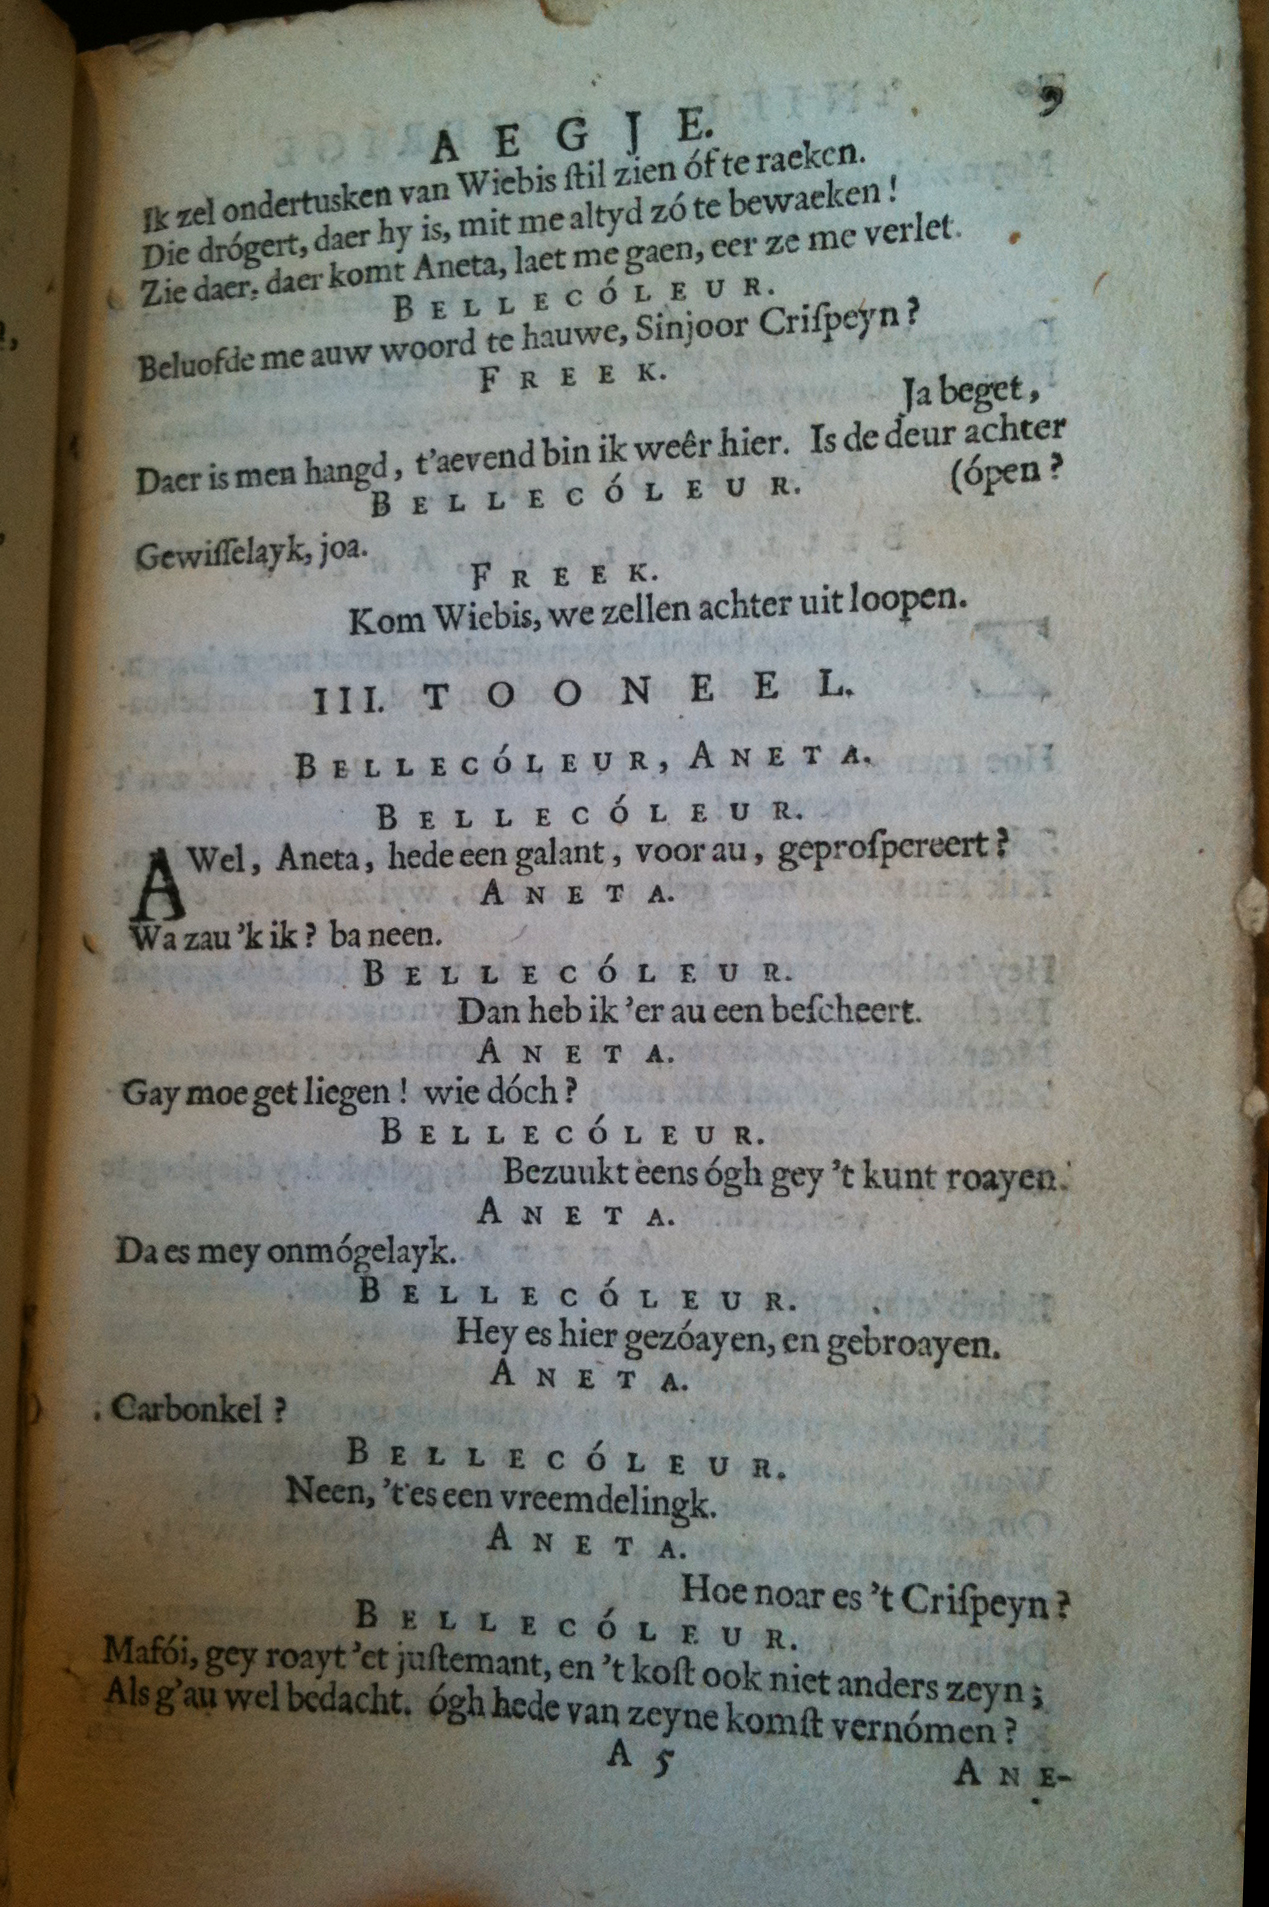 AEGJE. 9
Ik zel ondertusken van Wiebis ſtil zien óf te raeken.
Die drógert, daer hy is, mit me altyd zó te bewaeken!
Zie daer, daer komt Aneta, laet me gaen, eer ze me verlet.
BELLECÓLEUR.
Beluofde me auw woord te hauwe, Sinjoor Criſpeyn?
FREEK.
Ja beget,
Daer is men hangd, t'aevend bin ik weêr hier. Is de deur achter
(ópen?
BELLECÓLEUR.
Gewiſſelayk, joa.
FREEK.
Kom Wiebis, we zellen achter uit loopen.
III. TOONEEL.
BELLECÓLEUR, ANETA.
BELLECÓLEUR.
AWel, Aneta, hede een galant, voor au, geproſpereert?
ANETA.
Wa zau 'k ik? ba neen.
BELLECÓLEUR.
Dan heb ik 'er au een beſcheert.
ANETA.
Gay moe get liegen! wie dóch?
BELLECÓLEUR.
Bezuukt eens ógh gey 't kunt roayen.
ANETA.
Da es mey onmógelayk.
BELLECÓLEUR.
Hey es hier gezóayen, en gebroayen.
ANETA.
Carbonkel?
BELLECÓLEUR.
Neen, 't es een vreemdelingk.
ANETA.
Hoe noar es 't Criſpeyn?
BELLECÓLEUR.
Mafói, gey roayt 'et juſtemant, en 't koſt ook niet anders zeyn;
Als g'au wel bedacht. ógh hede van zeyne komſt vernómen?
A 5 ANE-